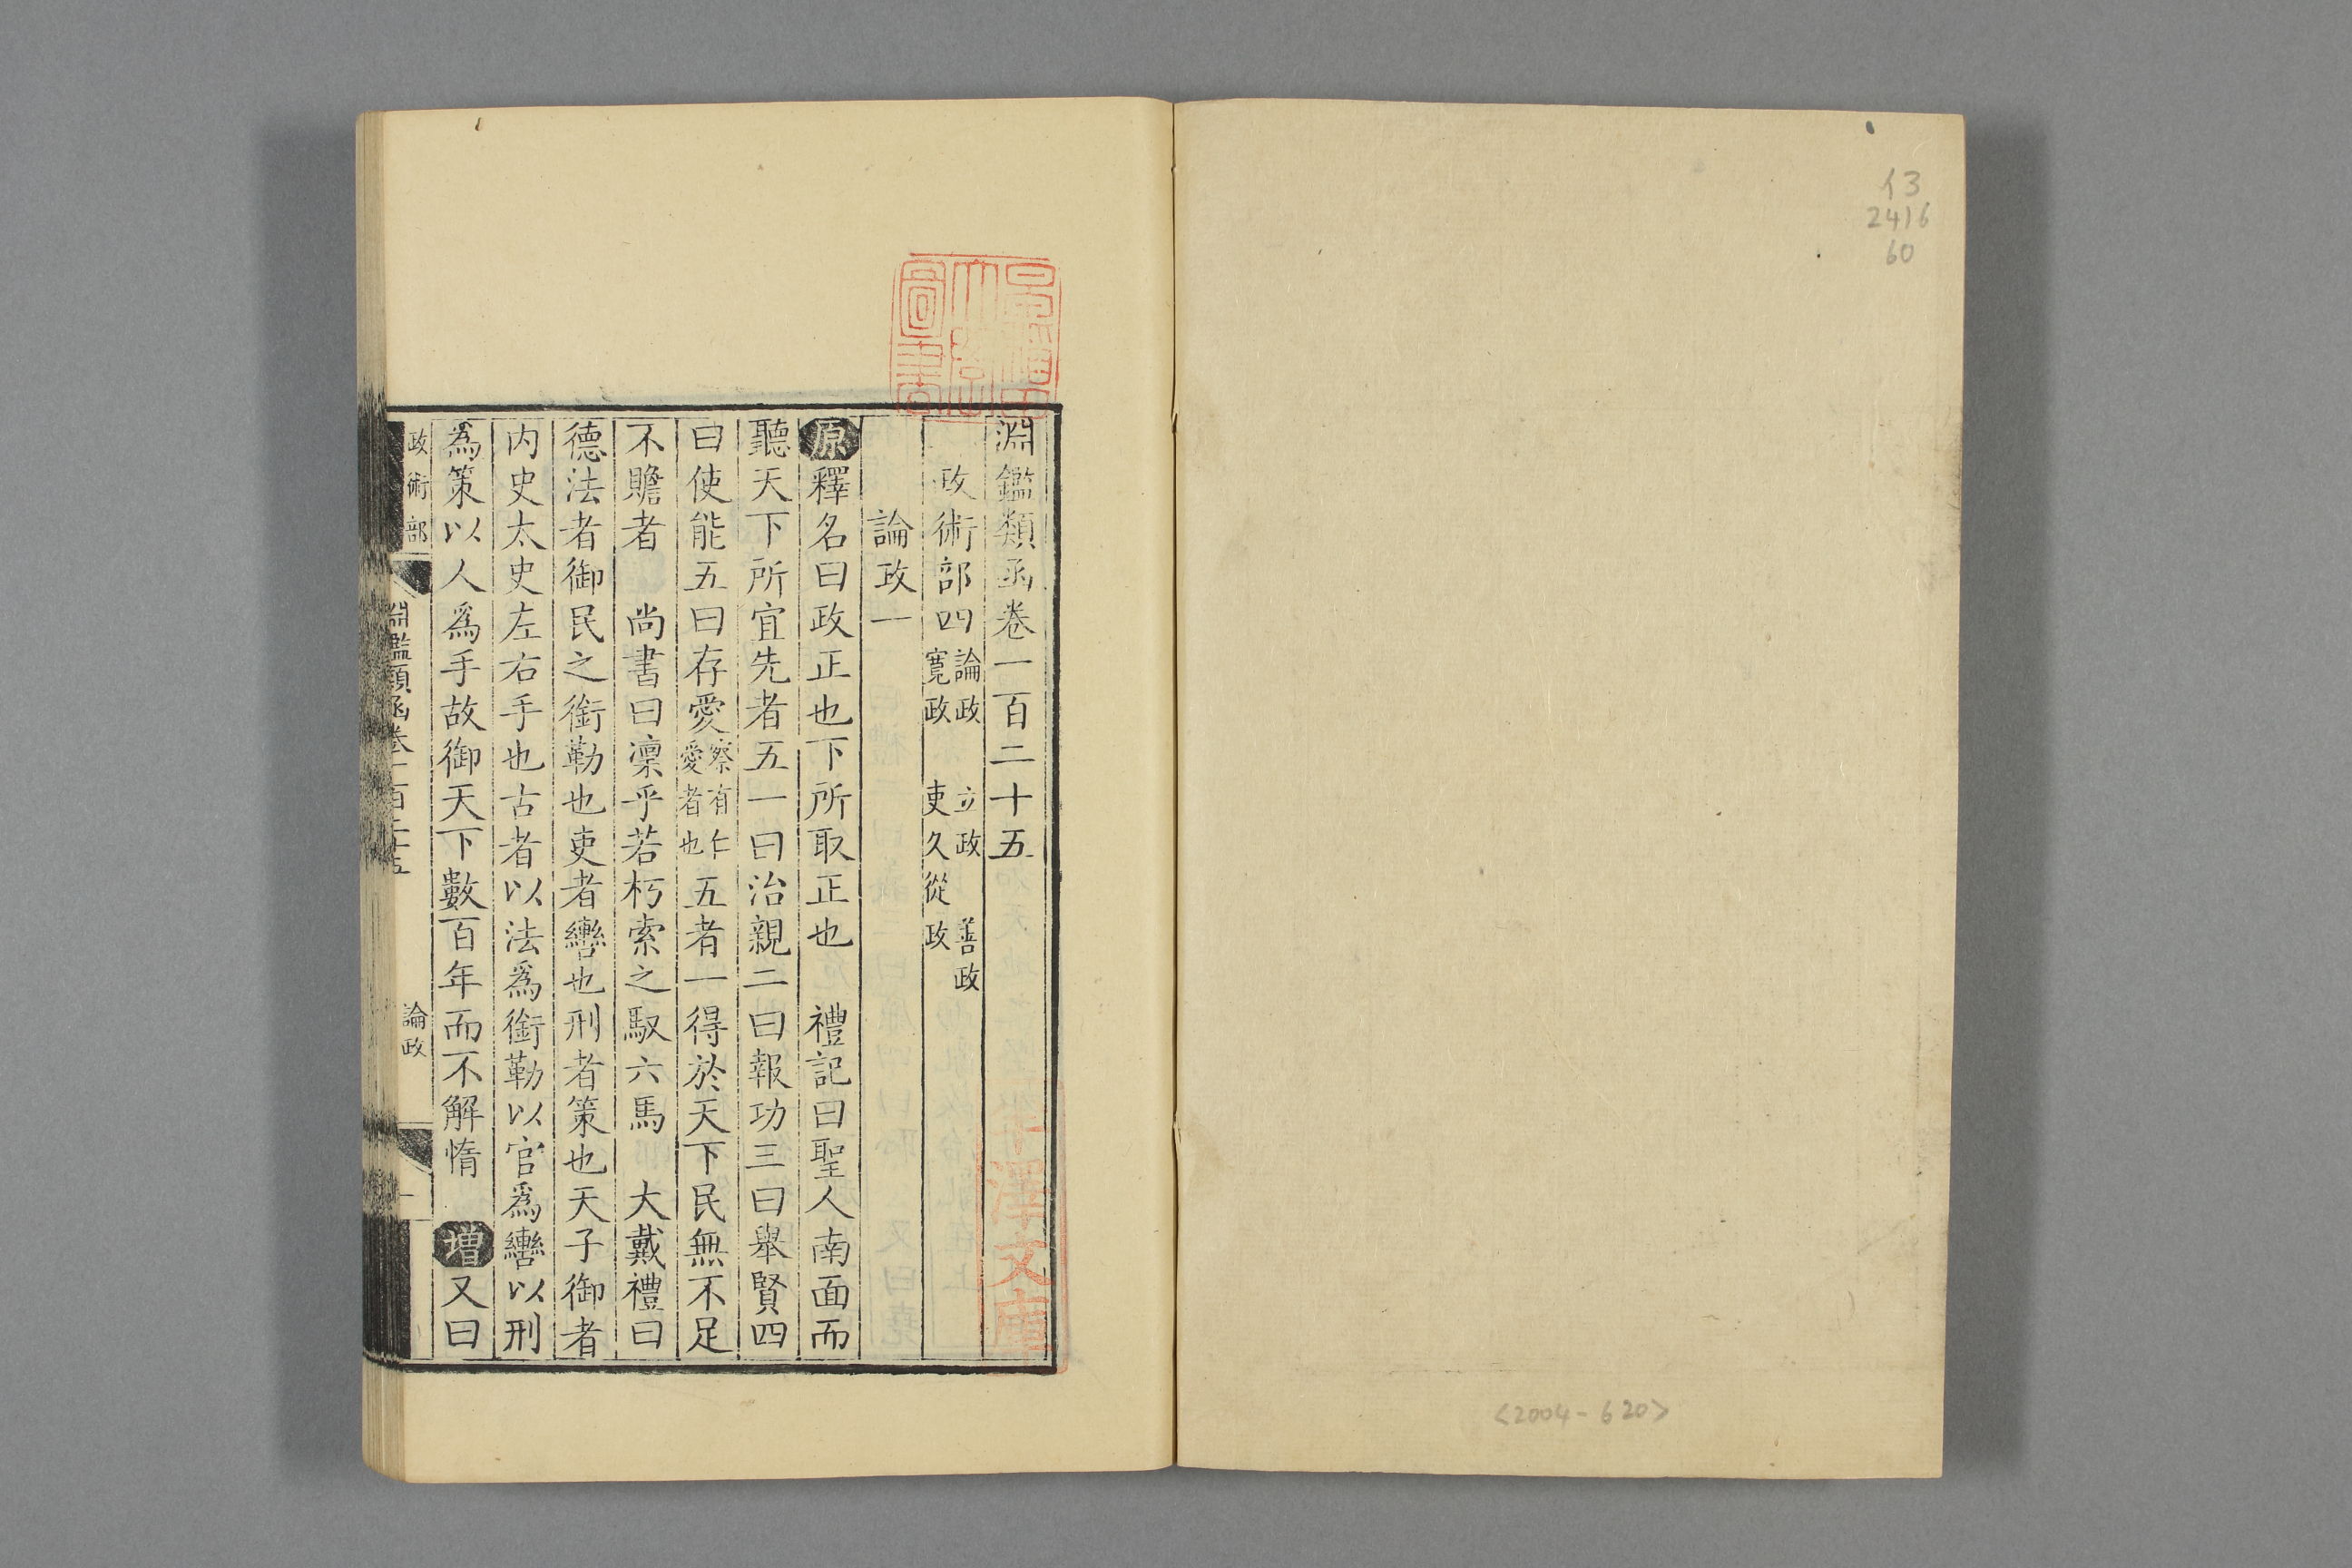 13
2416
60
<2004-620>
淵鑑類函卷一百二十五
政術部四 論政 立政 善政 寬政 吏久從政
論政一
原釋名曰政正也下所取正也 禮記曰聖人南面而
聽天下所宜先者五一曰治親二曰報功三曰舉賢四
曰使能五曰存愛察有仁愛者也五者一得於天下民無不足
不贍者 尚書曰凜乎若朽索之馭六馬 大戴禮曰
德法者御民之銜勒也吏者轡也刑者策也天子御者
内史太史左右手也古者以法爲銜勒以官爲轡以刑
爲策以人爲手故御天下數百年而不解惰 增又曰
政術部 淵鑑類函卷一百二十五 論政 一
圖書
澤文庫